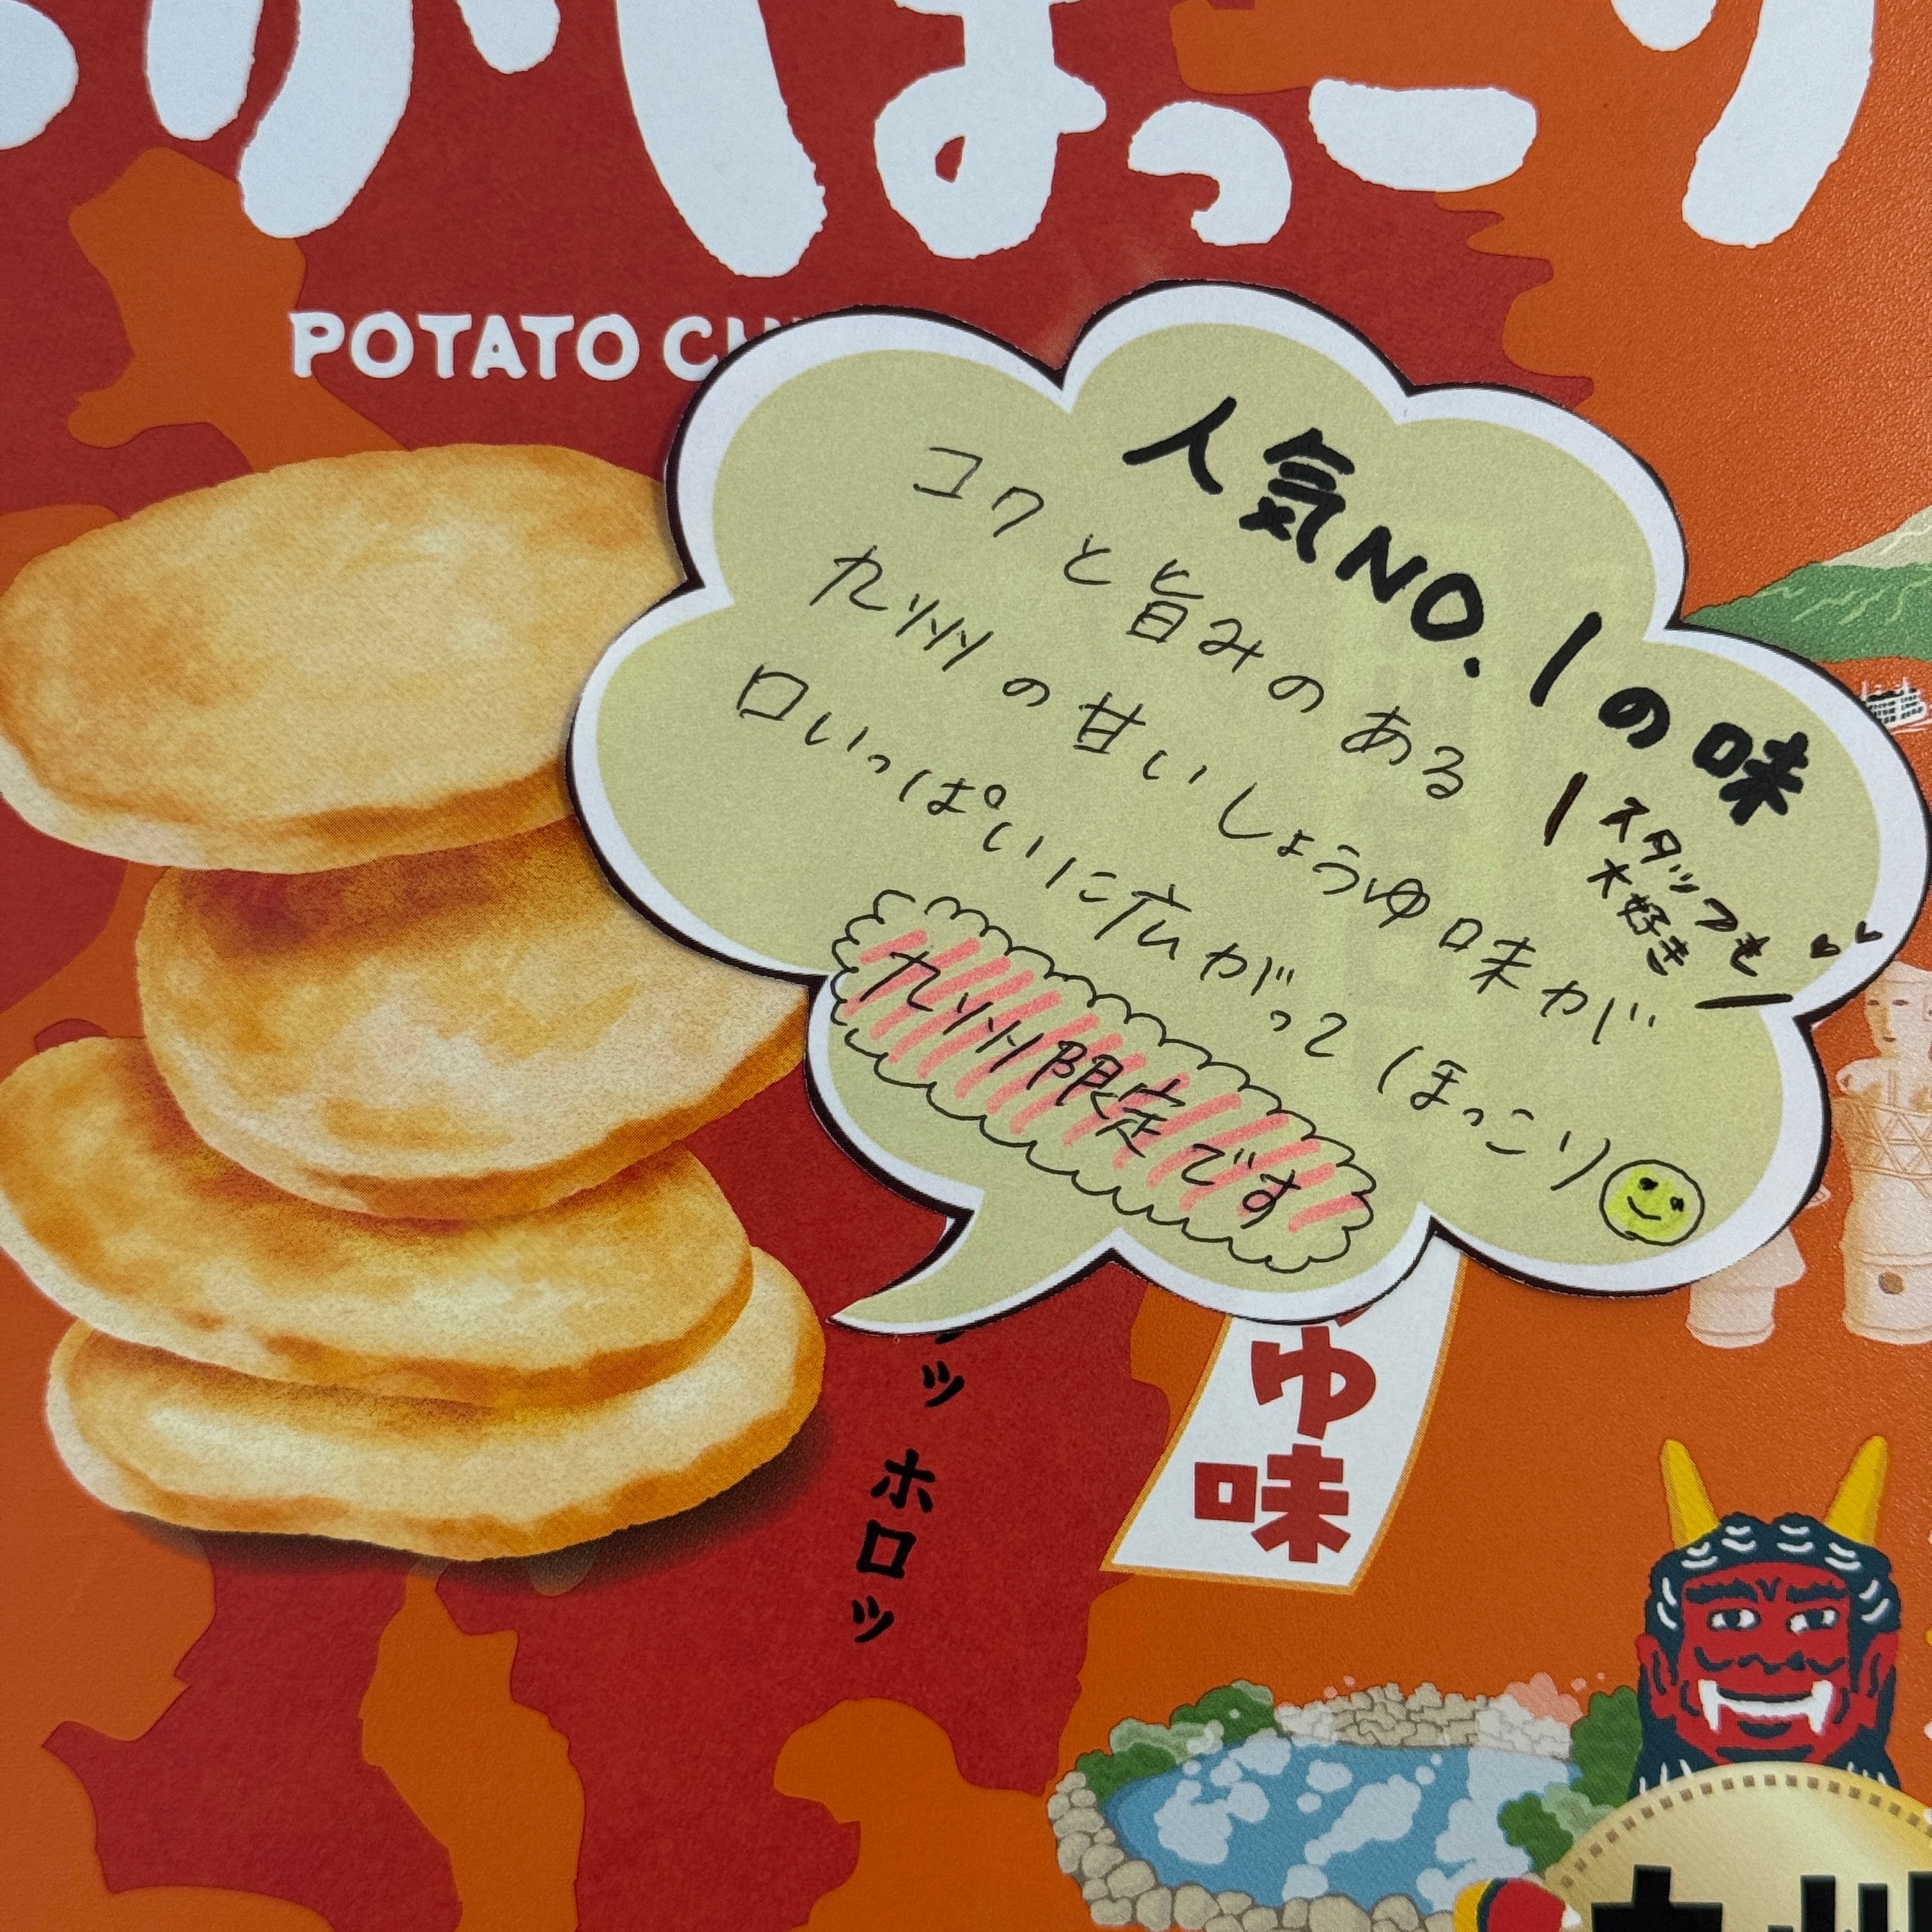 ほっこり
POTATO
人気NO.1の味
コクと旨みのある
九州の甘いしょうゆ味が
口いっぱいに広がってほっこり
スタッフも
大好き
九州限定です
ゆ味
ホロッ
九州